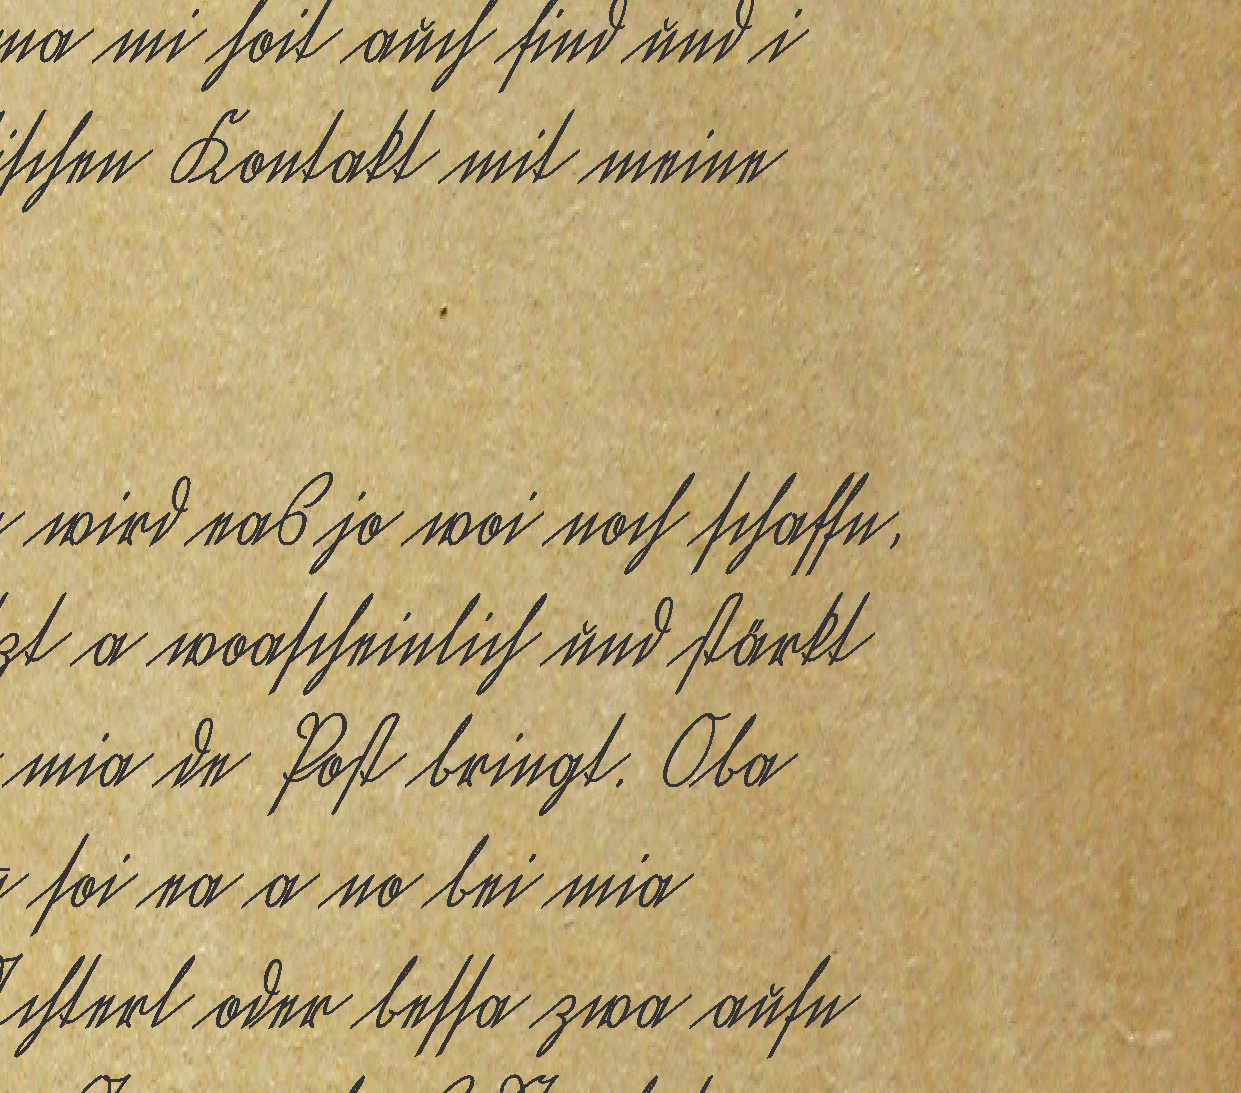 ma mi hoit auch find und i
ischen Kontakt mit meine
wird eas jo woi noch schaffn,
zt a woascheinlich und stärkt
mia de Post bringt. Oba
soi ea a no bei mia
chterl oder bessa zwa aufn